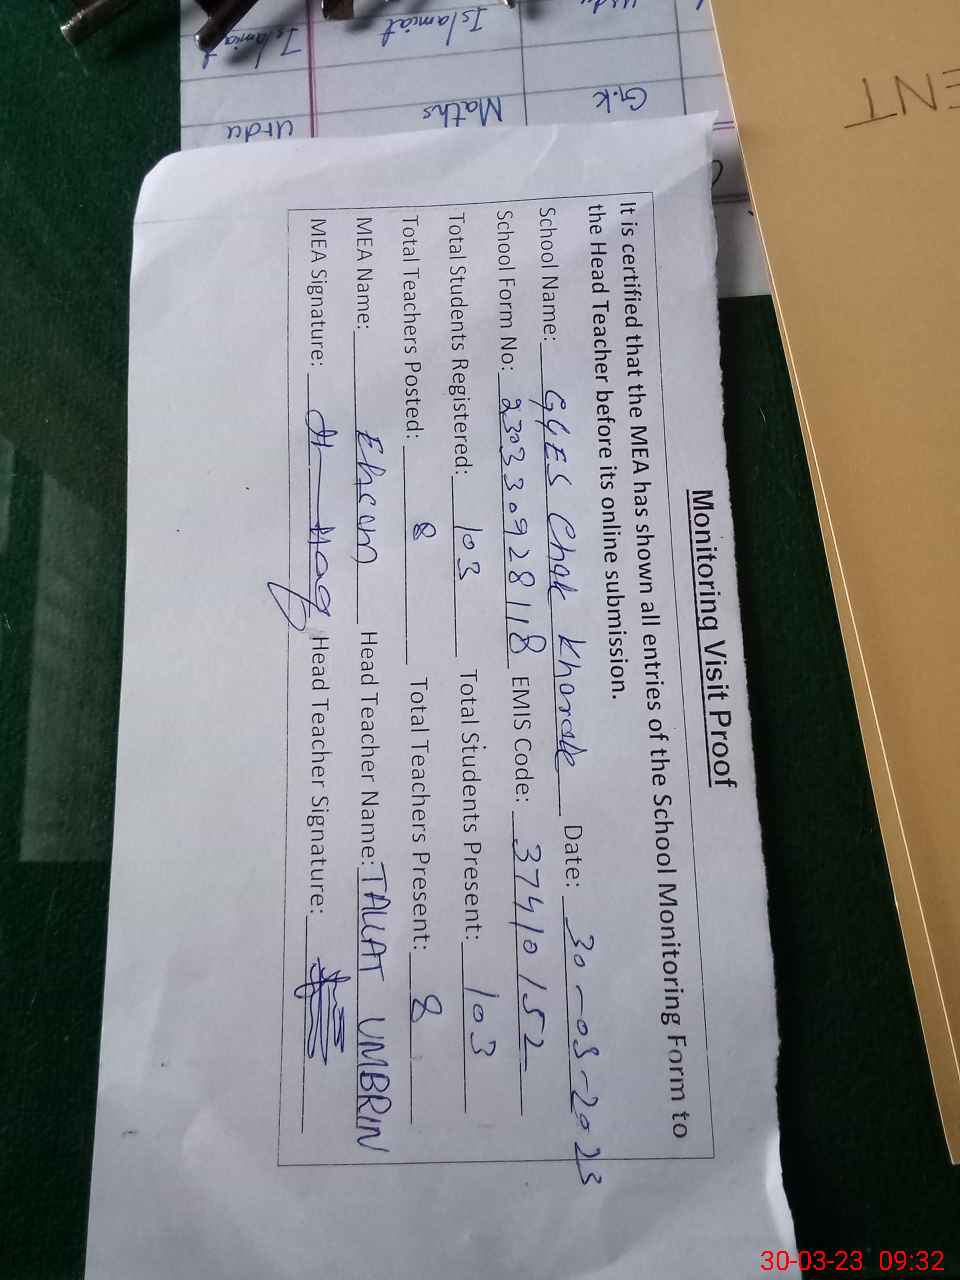 Monitoring Visit Proof
It is certified that the MEA has shown all entries of the School Monitoring Form to
the Head Teacher before its online submission.
School Name: GGES Chak Kharak Date: 30-03-2023
School Form No: 230330928118 EMIS Code: 37410152
Total Students Registered: 103 Total Students Present: 103
Total Teachers Posted: 8 Total Teachers Present: 8
MEA Name: Ehsan Head Teacher Name: TALLAT UMBRIN
MEA Signature: Head Teacher Signature:
Islamiat Islamiat Urdu
Urdu Maths G.K
ENT
30-03-23 09:32